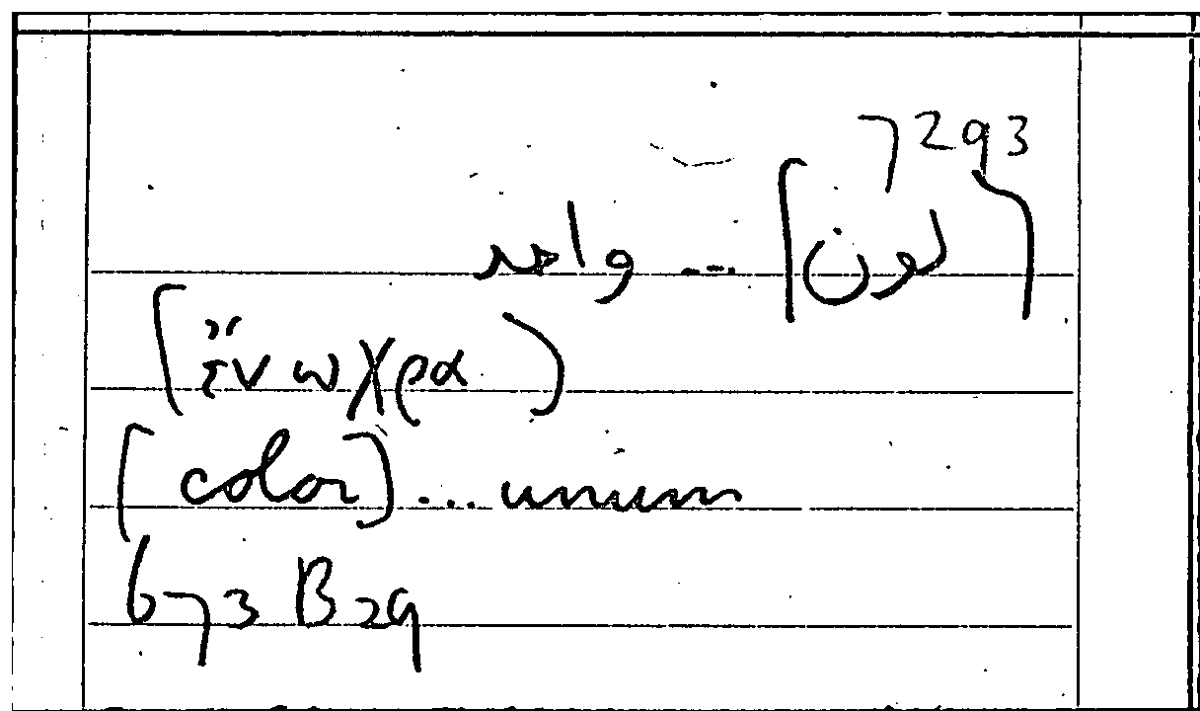 7293
[لون] ... واحد
[ἓν ωχρα)
[color] ... unum
673 B 29